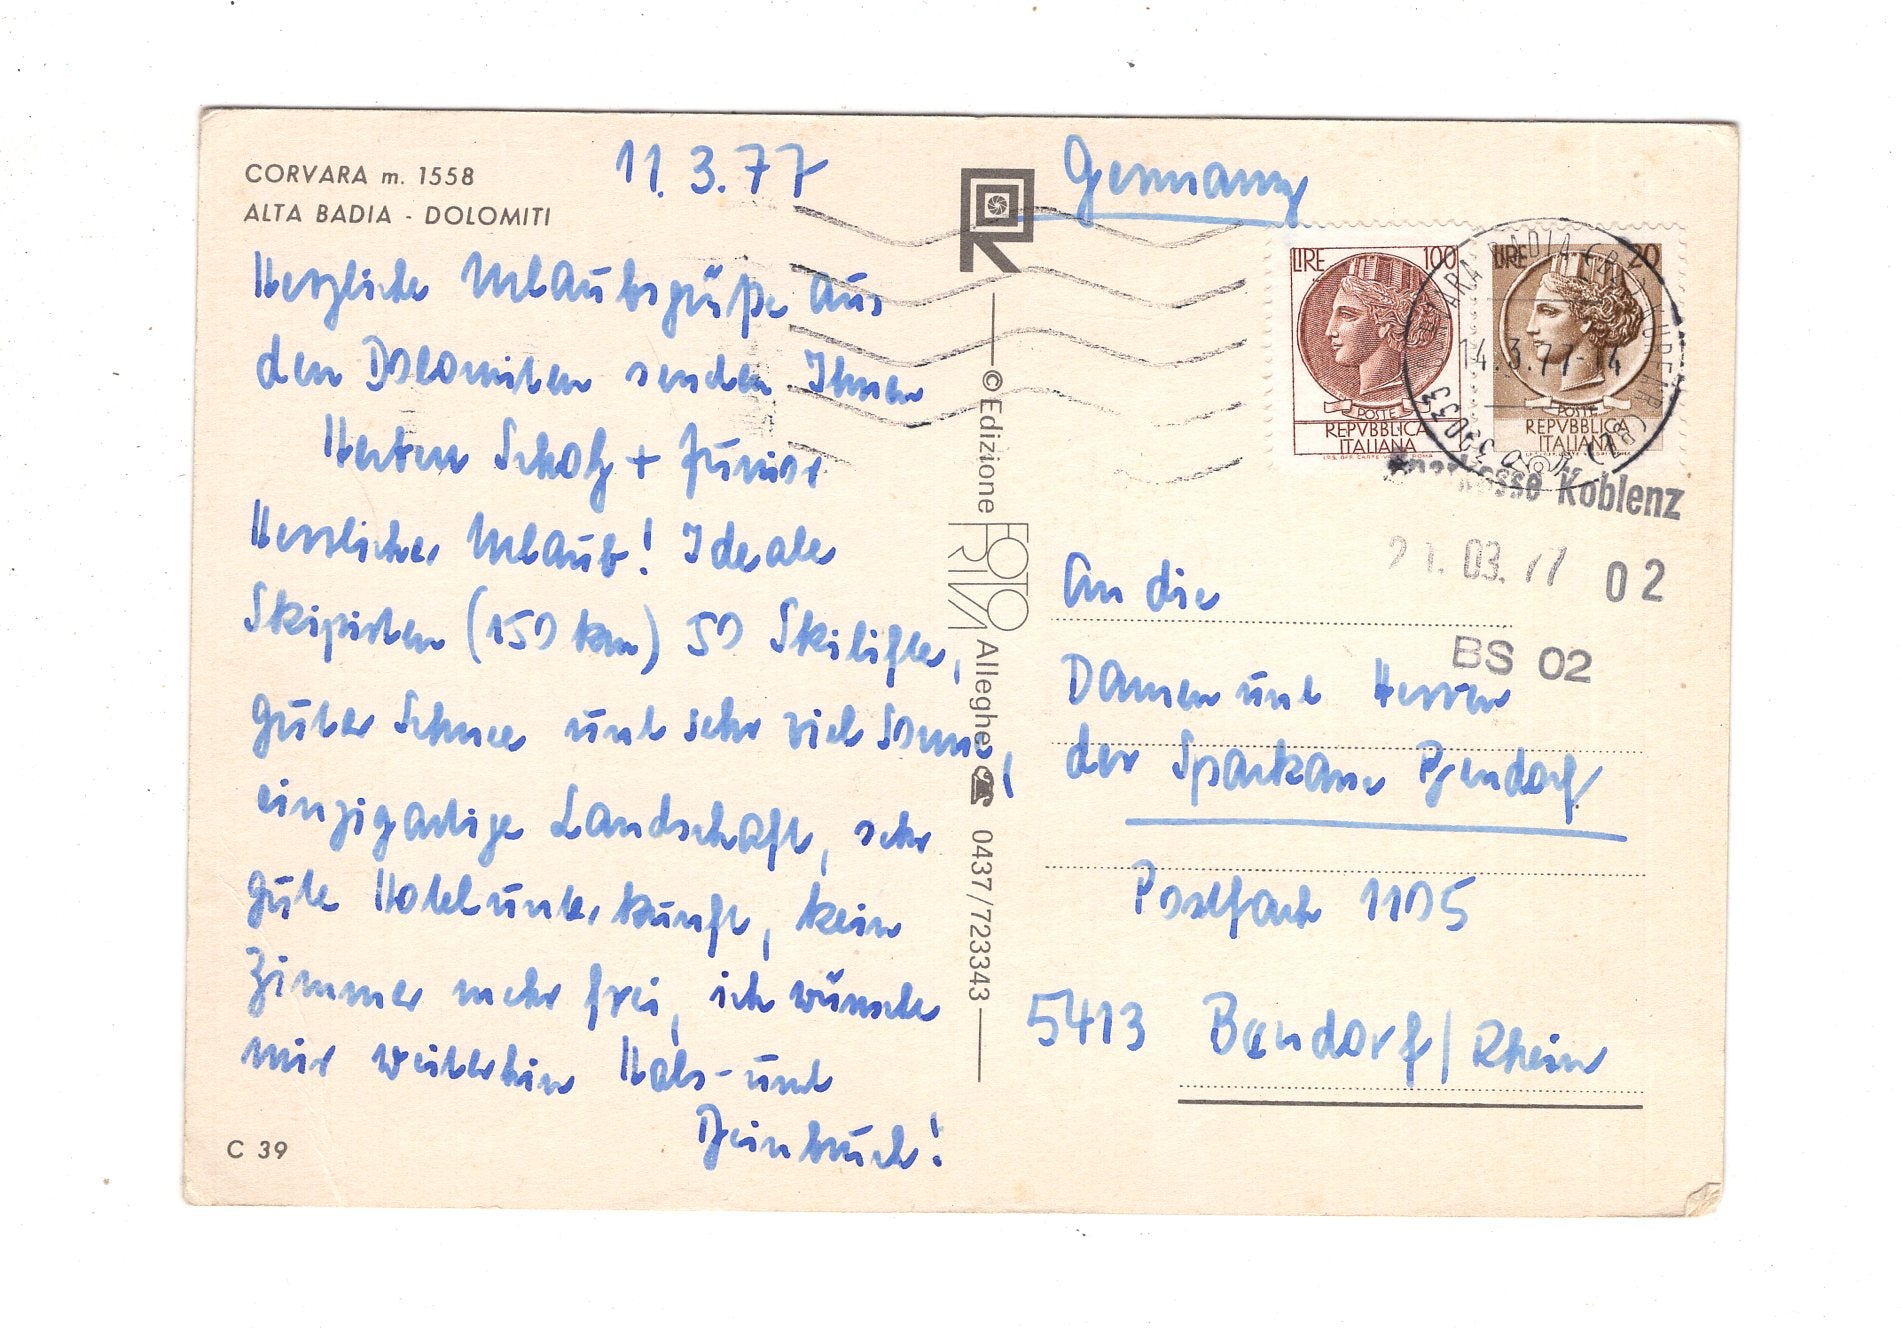 CORVARA m. 1558
ALTA BADIA - DOLOMITI
11.3.77
Herzliche Urlaubsgrüße aus
den Dolomiten senden Ihnen
Scholz + Junior
Herrlicher Urlaub! Ideale
Skipisten (150 km) 50 Skilifte,
guter Schnee und sehr viel Sonne,
einzigartige Landschaft, sehr
gute Hotelunterkunft, kein
Zimmer mehr frei, ich wünsche
mir weiterhin Hals- und
Beinbruch!
C 39
© Edizione FOTO RIVA Alleghe ☎ 0437/723343
Germany
LIRE 100
POSTE
REPVBBLICA
ITALIANA
LIRE 20
POSTE
REPVBBLICA
ITALIANA
14.3.77-14
39033
Sparkasse Koblenz
21.03.77 02
BS 02
An die
Damen und Herren
der Sparkasse Bendorf
Postfach 1105
5413 Bendorf/Rhein